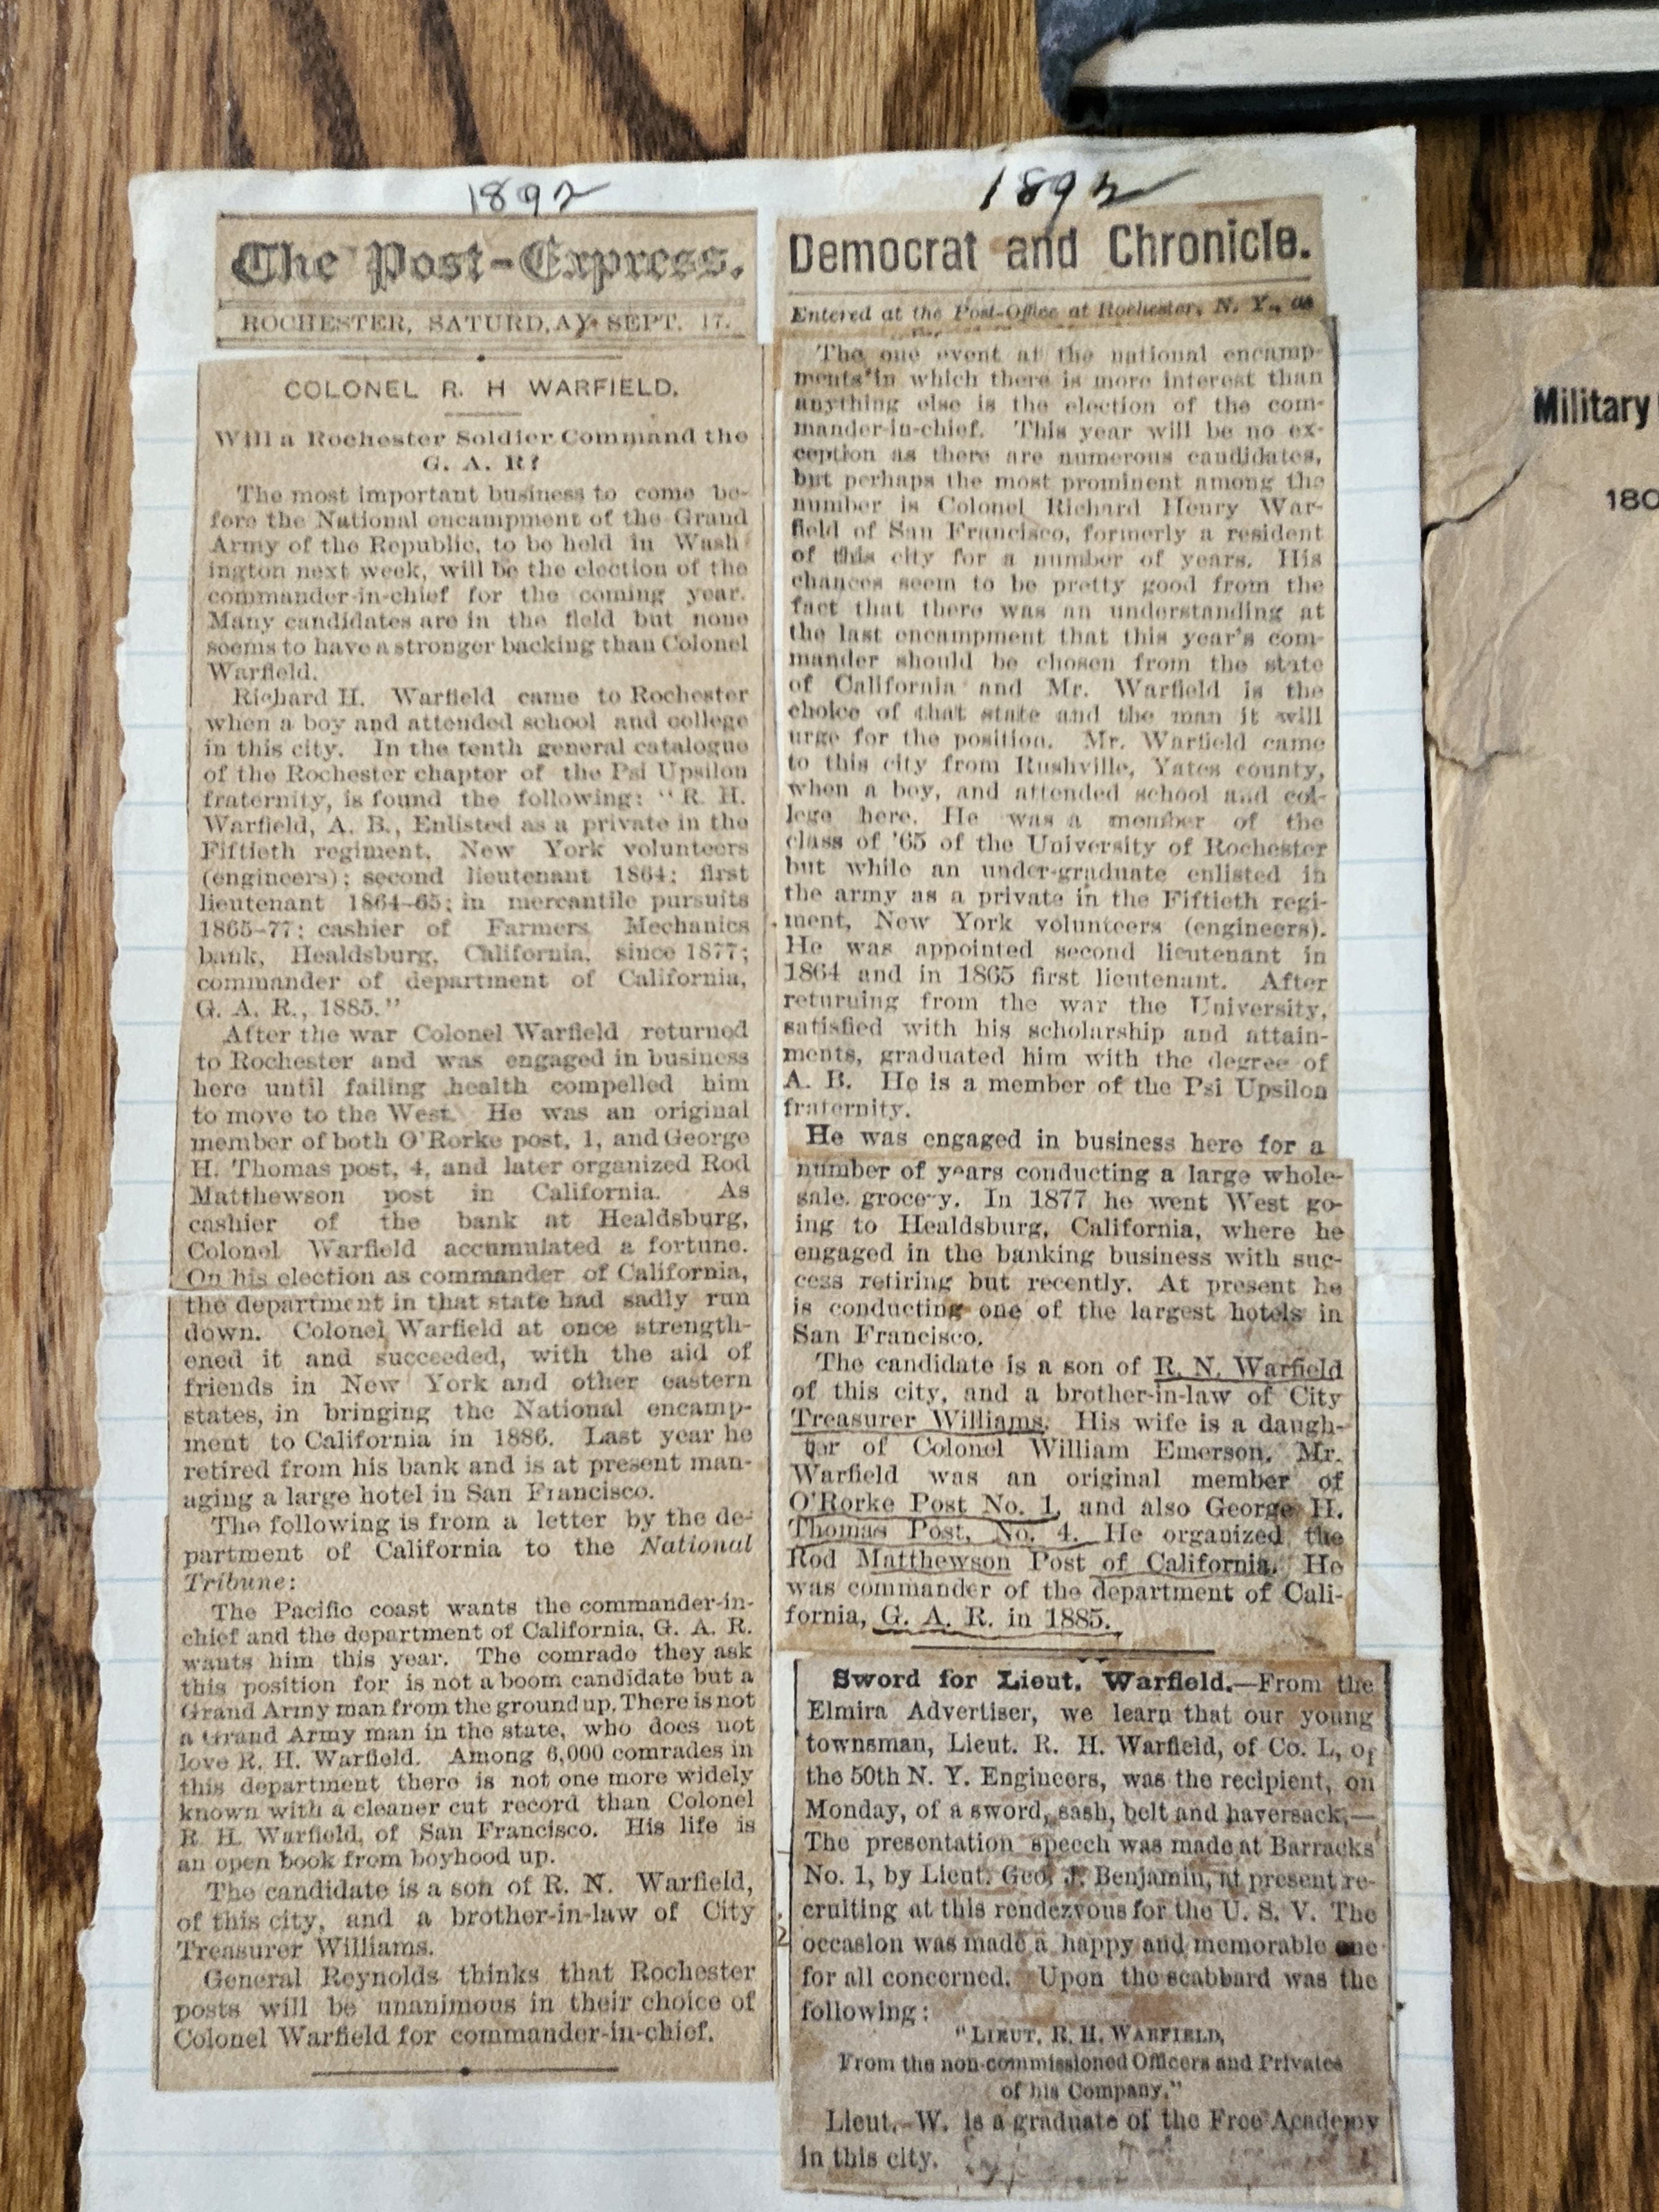 1892
The Post-Express.
ROCHESTER, SATURDAY, SEPT. 17.
COLONEL R. H WARFIELD.
Will a Rochester Soldier Command the
G. A. R?
The most important business to come be-
fore the National encampment of the Grand
Army of the Republic, to be held in Wash
ington next week, will be the election of the
commander-in-chief for the coming year.
Many candidates are in the field but none
seems to have a stronger backing than Colonel
Warfield.
Richard H. Warfield came to Rochester
when a boy and attended school and college
in this city. In the tenth general catalogue
of the Rochester chapter of the Psi Upsilon
fraternity, is found the following: "R. H.
Warfield, A. B., Enlisted as a private in the
Fiftieth regiment, New York volunteers
(engineers); second lieutenant 1864; first
lieutenant 1864-65; in mercantile pursuits
1865-77; cashier of Farmers Mechanics
bank, Healdsburg, California, since 1877;
commander of department of California,
G. A. R., 1885."
After the war Colonel Warfield returned
to Rochester and was engaged in business
here until failing health compelled him
to move to the West. He was an original
member of both O'Rorke post, 1, and George
H. Thomas post, 4, and later organized Rod
Matthewson post in California. As
cashier of the bank at Healdsburg,
Colonel Warfield accumulated a fortune.
On his election as commander of California,
the department in that state had sadly run
down. Colonel Warfield at once strength-
ened it and succeeded, with the aid of
friends in New York and other eastern
states, in bringing the National encamp-
ment to California in 1886. Last year he
retired from his bank and is at present man-
aging a large hotel in San Francisco.
The following is from a letter by the de-
partment of California to the National
Tribune:
The Pacific coast wants the commander-in-
chief and the department of California, G. A. R.
wants him this year. The comrade they ask
this position for is not a boom candidate but a
Grand Army man from the ground up. There is not
a Grand Army man in the state, who does not
love R. H. Warfield. Among 6,000 comrades in
this department there is not one more widely
known with a cleaner cut record than Colonel
R. H. Warfield, of San Francisco. His life is
an open book from boyhood up.
The candidate is a son of R. N. Warfield,
of this city, and a brother-in-law of City
Treasurer Williams.
General Reynolds thinks that Rochester
posts will be unanimous in their choice of
Colonel Warfield for commander-in-chief.
1892
Democrat and Chronicle.
Entered at the Post-Office at Rochester, N. Y., as
The one event at the national encamp-
ments in which there is more interest than
anything else is the election of the com-
mander-in-chief. This year will be no ex-
ception as there are numerous candidates,
but perhaps the most prominent among the
number is Colonel Richard Henry War-
field of San Francisco, formerly a resident
of this city for a number of years. His
chances seem to be pretty good from the
fact that there was an understanding at
the last encampment that this year's com-
mander should be chosen from the state
of California and Mr. Warfield is the
choice of that state and the man it will
urge for the position. Mr. Warfield came
to this city from Rushville, Yates county,
when a boy, and attended school and col-
lege here. He was a member of the
class of '65 of the University of Rochester
but while an under-graduate enlisted in
the army as a private in the Fiftieth regi-
ment, New York volunteers (engineers).
He was appointed second lieutenant in
1864 and in 1865 first lieutenant. After
returning from the war the University,
satisfied with his scholarship and attain-
ments, graduated him with the degree of
A. B. He is a member of the Psi Upsilon
fraternity.
He was engaged in business here for a
number of years conducting a large whole-
sale. grocery. In 1877 he went West go-
ing to Healdsburg, California, where he
engaged in the banking business with suc-
cess retiring but recently. At present he
is conducting one of the largest hotels in
San Francisco.
The candidate is a son of R. N. Warfield
of this city, and a brother-in-law of City
Treasurer Williams. His wife is a daugh-
ter of Colonel William Emerson. Mr.
Warfield was an original member of
O'Rorke Post No. 1, and also George H.
Thomas Post, No. 4. He organized the
Rod Matthewson Post of California. He
was commander of the department of Cali-
fornia, G. A. R. in 1885.
Sword for Lieut. Warfield.—From the
Elmira Advertiser, we learn that our young
townsman, Lieut. R. H. Warfield, of Co. L, of
the 50th N. Y. Engineers, was the recipient, on
Monday, of a sword, sash, belt and haversack,—
The presentation speech was made at Barracks
No. 1, by Lieut. Geo. J. Benjamin, at present re-
cruiting at this rendezvous for the U. S. V. The
occasion was made a happy and memorable one
for all concerned. Upon the scabbard was the
following:
"LIEUT. R. H. WARFIELD,
From the non-commissioned Officers and Privates
of his Company."
Lieut. W. is a graduate of the Free Academy
in this city.
Military
180